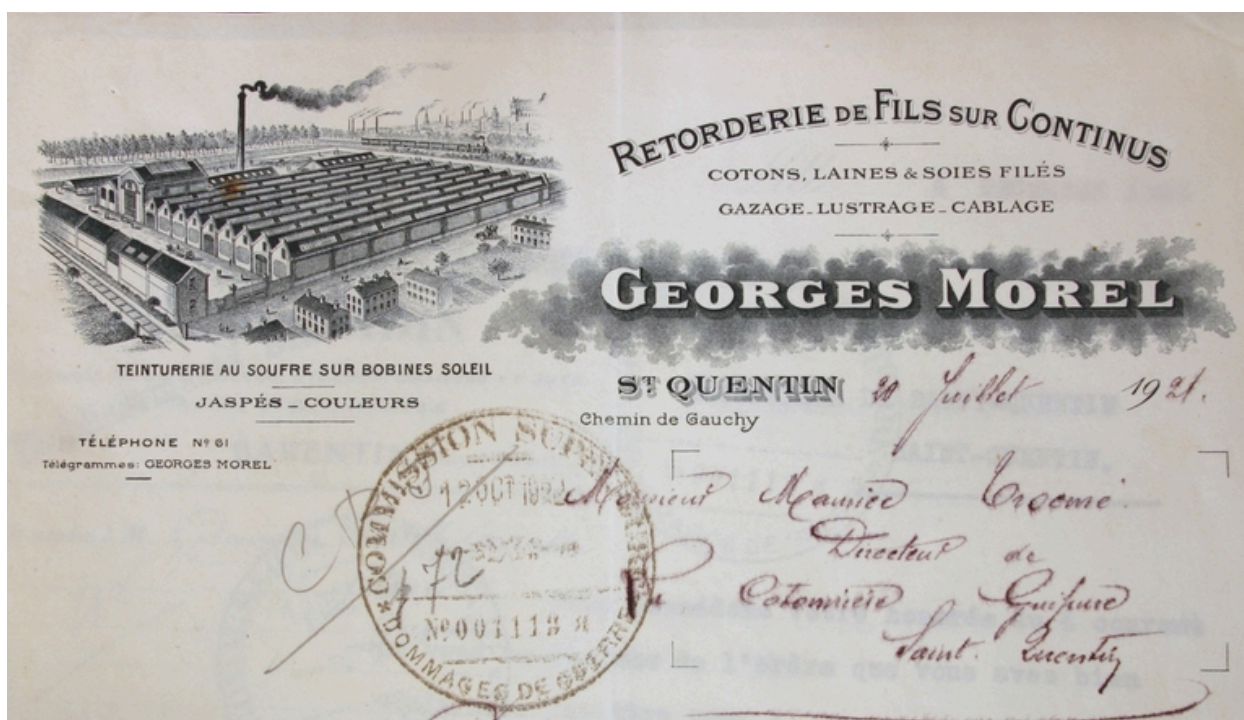 RETORDERIE DE FILS SUR CONTINUS
COTONS, LAINES & SOIES FILÉS
GAZAGE_LUSTRAGE_CABLAGE
GEORGES MOREL
TEINTURERIE AU SOUFRE SUR BOBINES SOLEIL
JASPÉS _ COULEURS
TÉLÉPHONE Nº 61
Télégrammes: GEORGES MOREL
ST QUENTIN 20 Juillet 1921.
Chemin de Gauchy
COMMISSION SUPÉRIEURE
12 OCT
172
Nº 001113
DOMMAGES DE GUERRE
Monsieur Maurice Trocmé
Directeur de
Cotonnière Guipure
Saint. Quentin